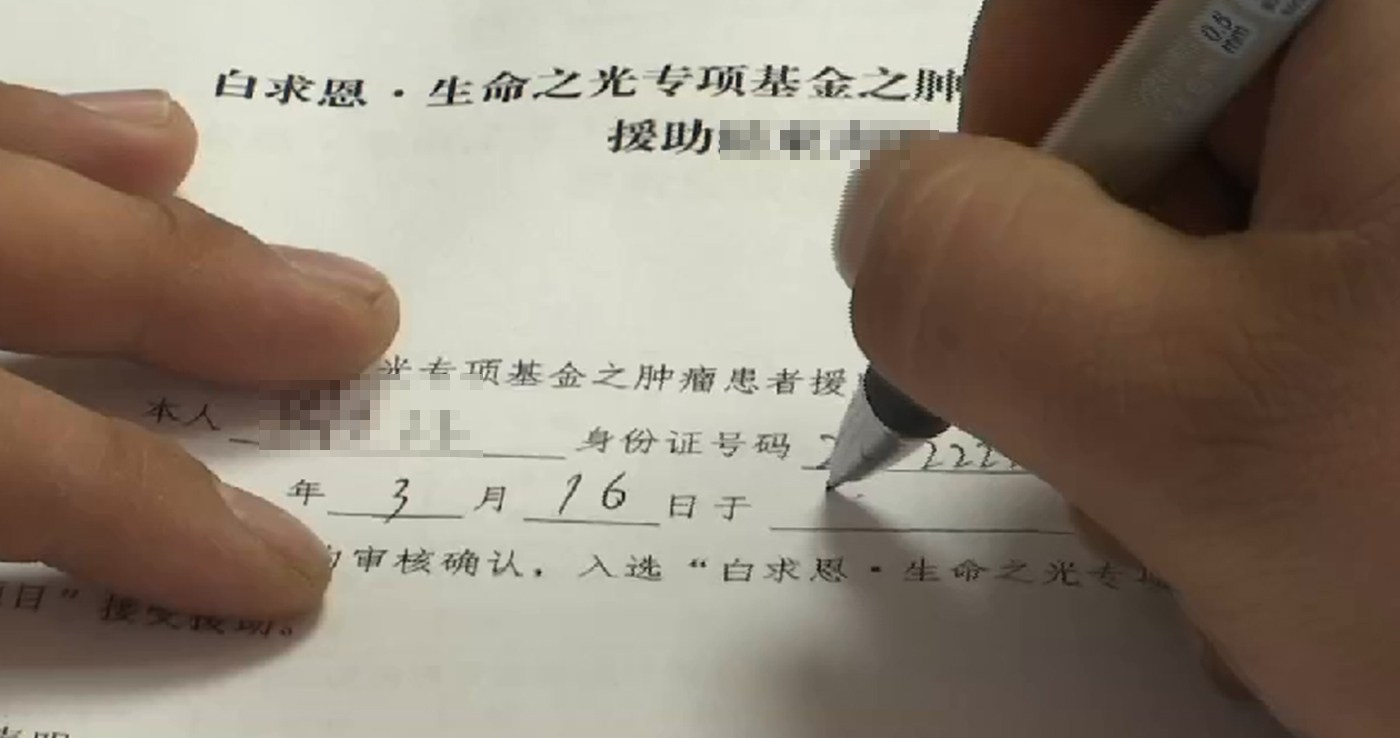 白求恩·生命之光专项基金之肿
援助
光专项基金之肿瘤患者援
本人 身份证号码 2 222
年 3 月 16 日于
审核确认，入选“白求恩·生命之光专项
目”接受援助。
声明
0.5 mm